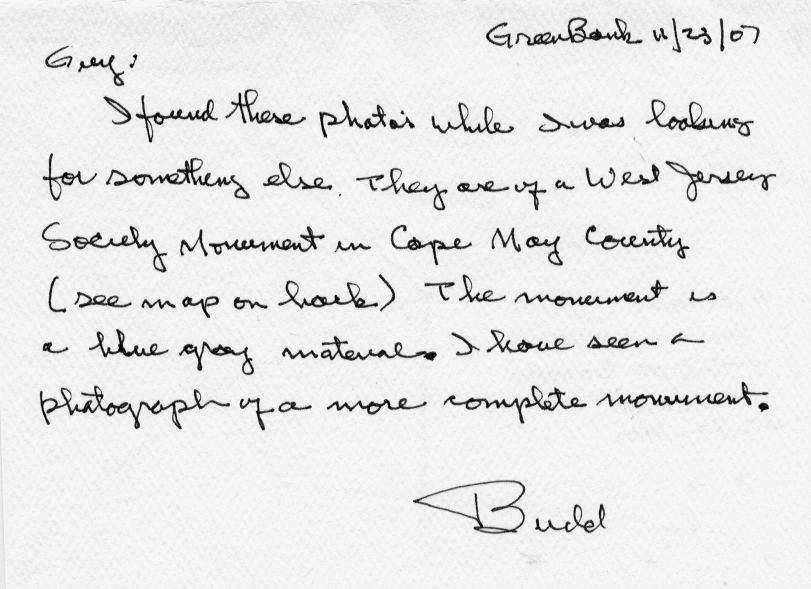 GreenBank 11/23/07
Greg:
I found these photo's while I was looking
for something else. They are of a West Jersey
Society Monument in Cape May County
(see map on back) The monument is
a blue gray material. I have seen a
photograph of a more complete monument.
Budd